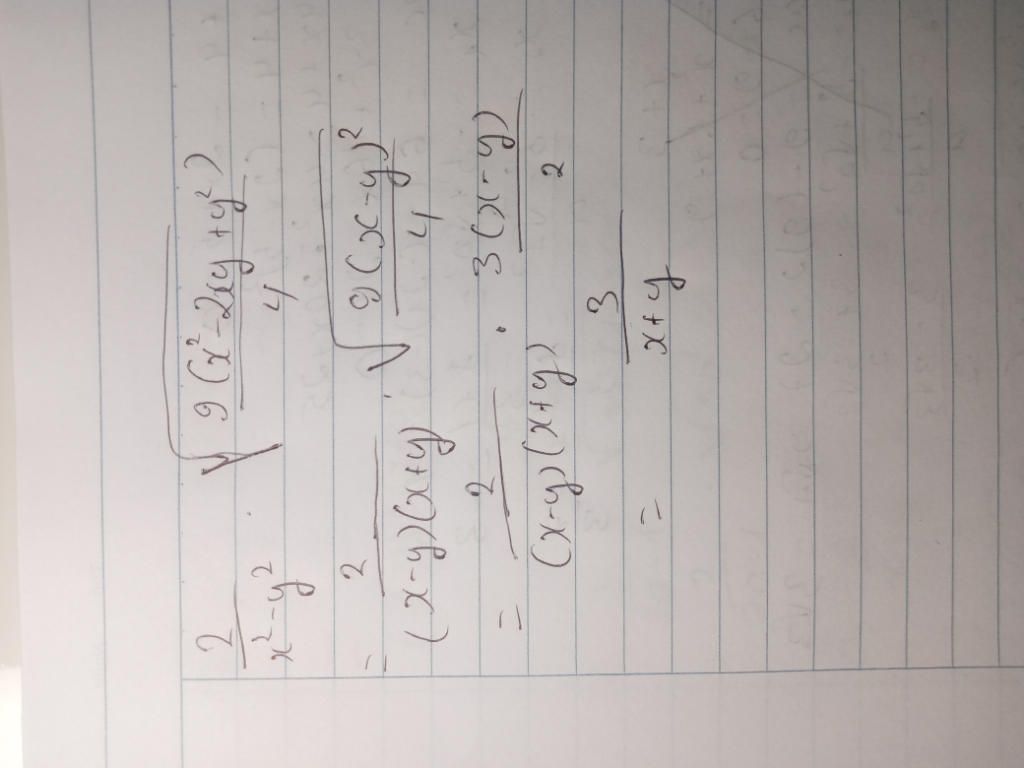 2/(x² - y²) · √(9(x² - 2xy + y²)/4)
= 2/((x-y)(x+y)) · √(9(x-y)²/4)
= 2/((x-y)(x+y)) · 3(x-y)/2
= 3/(x+y)